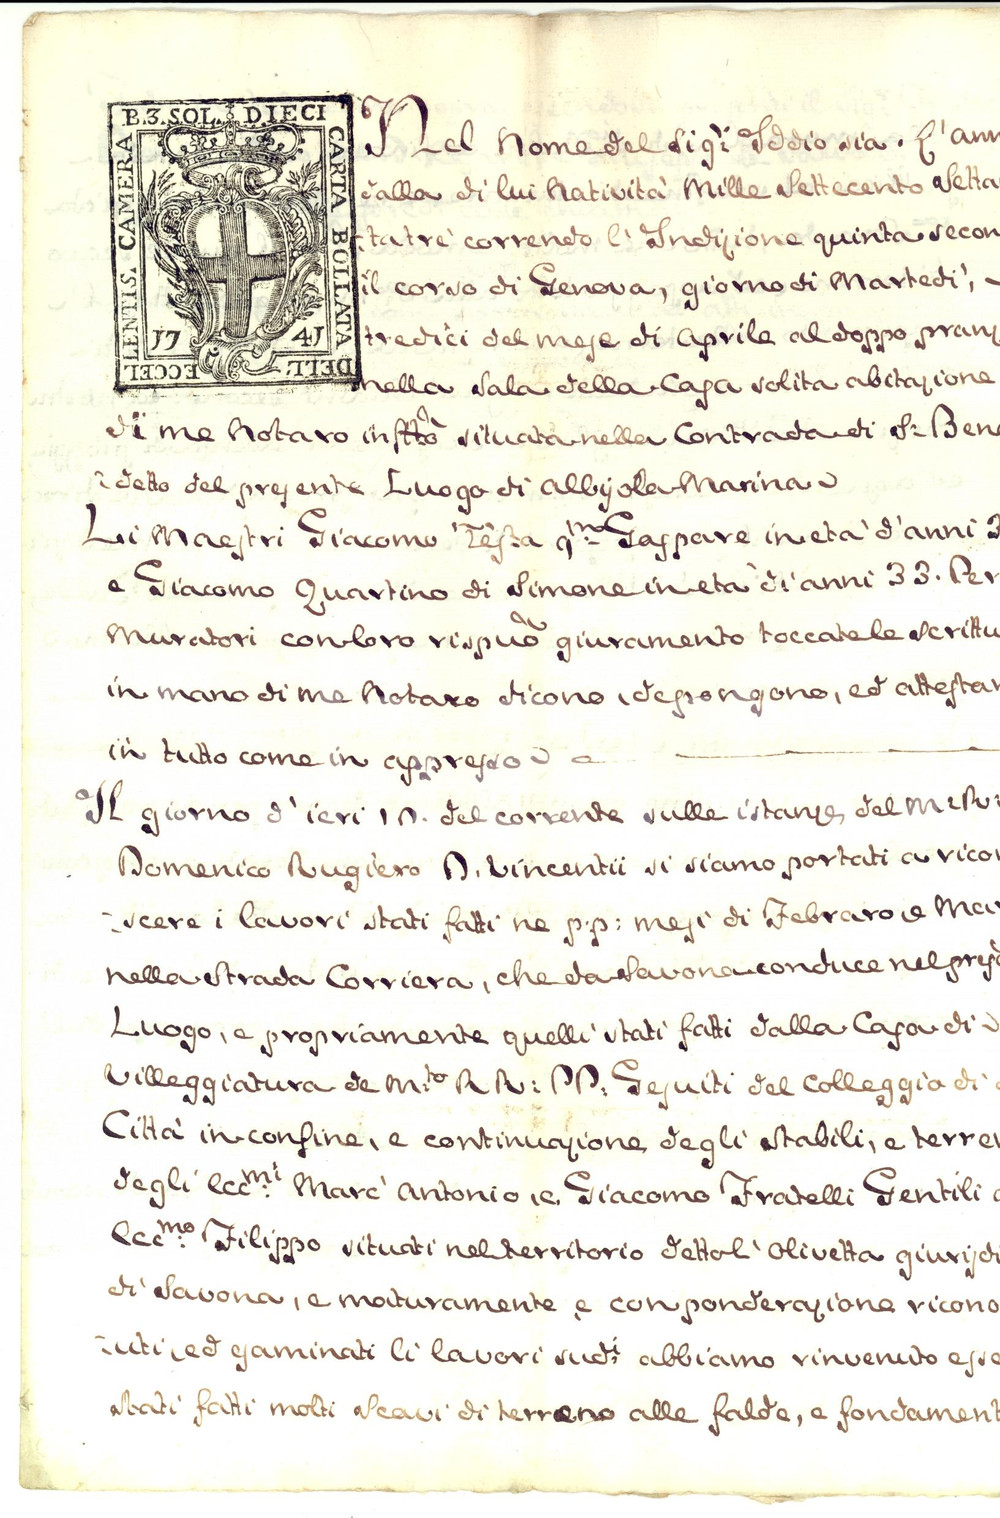 B.3. SOL. DIECI
CARTA BOLLATA
DELL'
ECCEL
LENTIS. CAMERA
17 41
Nel Nome del Sig:r Iddio sia. L'ann
dalla di lui Natività Mille Settecento Setta
tatrè correndo l'Indizione quinta secon
il corso di Genova, giorno di Martedì,
tredici del mese di Aprile al doppo pranz
nella Sala della Casa solita abitazione
di me Notaro infttò situata nella Contrada di S: Bene
detto del presente Luogo di Albisola Marina
Li Maestri Giacomo Testa q:m Gaspare in età d'anni 3
e Giacomo Quartino di Simone in età di anni 33. Per
Muratori con loro rispuõ giuramento toccate le scrittu
in mano di me Notaro dicono, depongono, ed attestan
in tutto come in appresso
Il giorno d'ieri 12. del corrente sulle istanze del M: R:
Domenico Rugiero D. Vincentii si siamo portati a ricon
scere i lavori stati fatti ne p:p: mesi di Febraro e Mar
nella Strada Corriera, che da Savona conduce nel pris
Luogo, e propriamente quelli stati fatti dalla Casa di
Villeggiatura de M:to RR: PP: Gesuiti del Colleggio di
Città in confine, e continuazione degli stabili, e terren
degli Ecc:mi Marc'Antonio e Giacomo Fratelli Gentili
Ecc:mo Filippo situati nel territorio detto l'Olivetta giurisdi
di Savona, e maturamente e con ponderazione ricono
uti, ed esaminati li lavori sud:i abbiamo rinvenuto esse
stati fatti molti scavi di terreno alle falde, e fondament